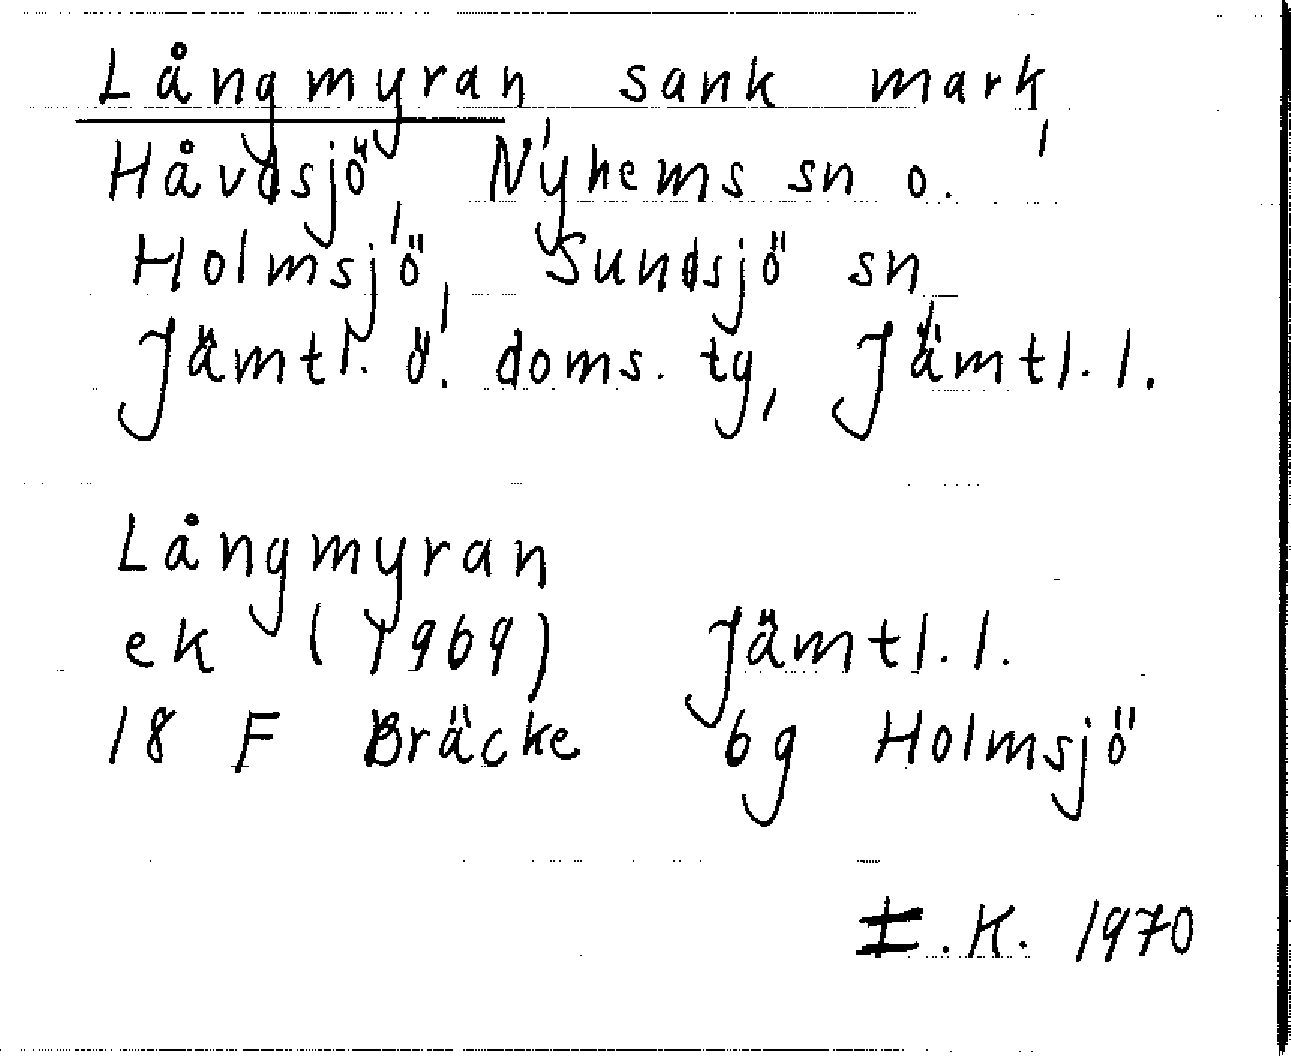 Långmyran sank mark,
Håvdsjö, Nyhems sn o.
Holmsjö, Sundsjö sn,
Jämtl. ö. doms. tg, Jämtl. l.
Långmyran
ek (1969) Jämtl. l.
18 F Bräcke bg Holmsjö
I.K. 1970